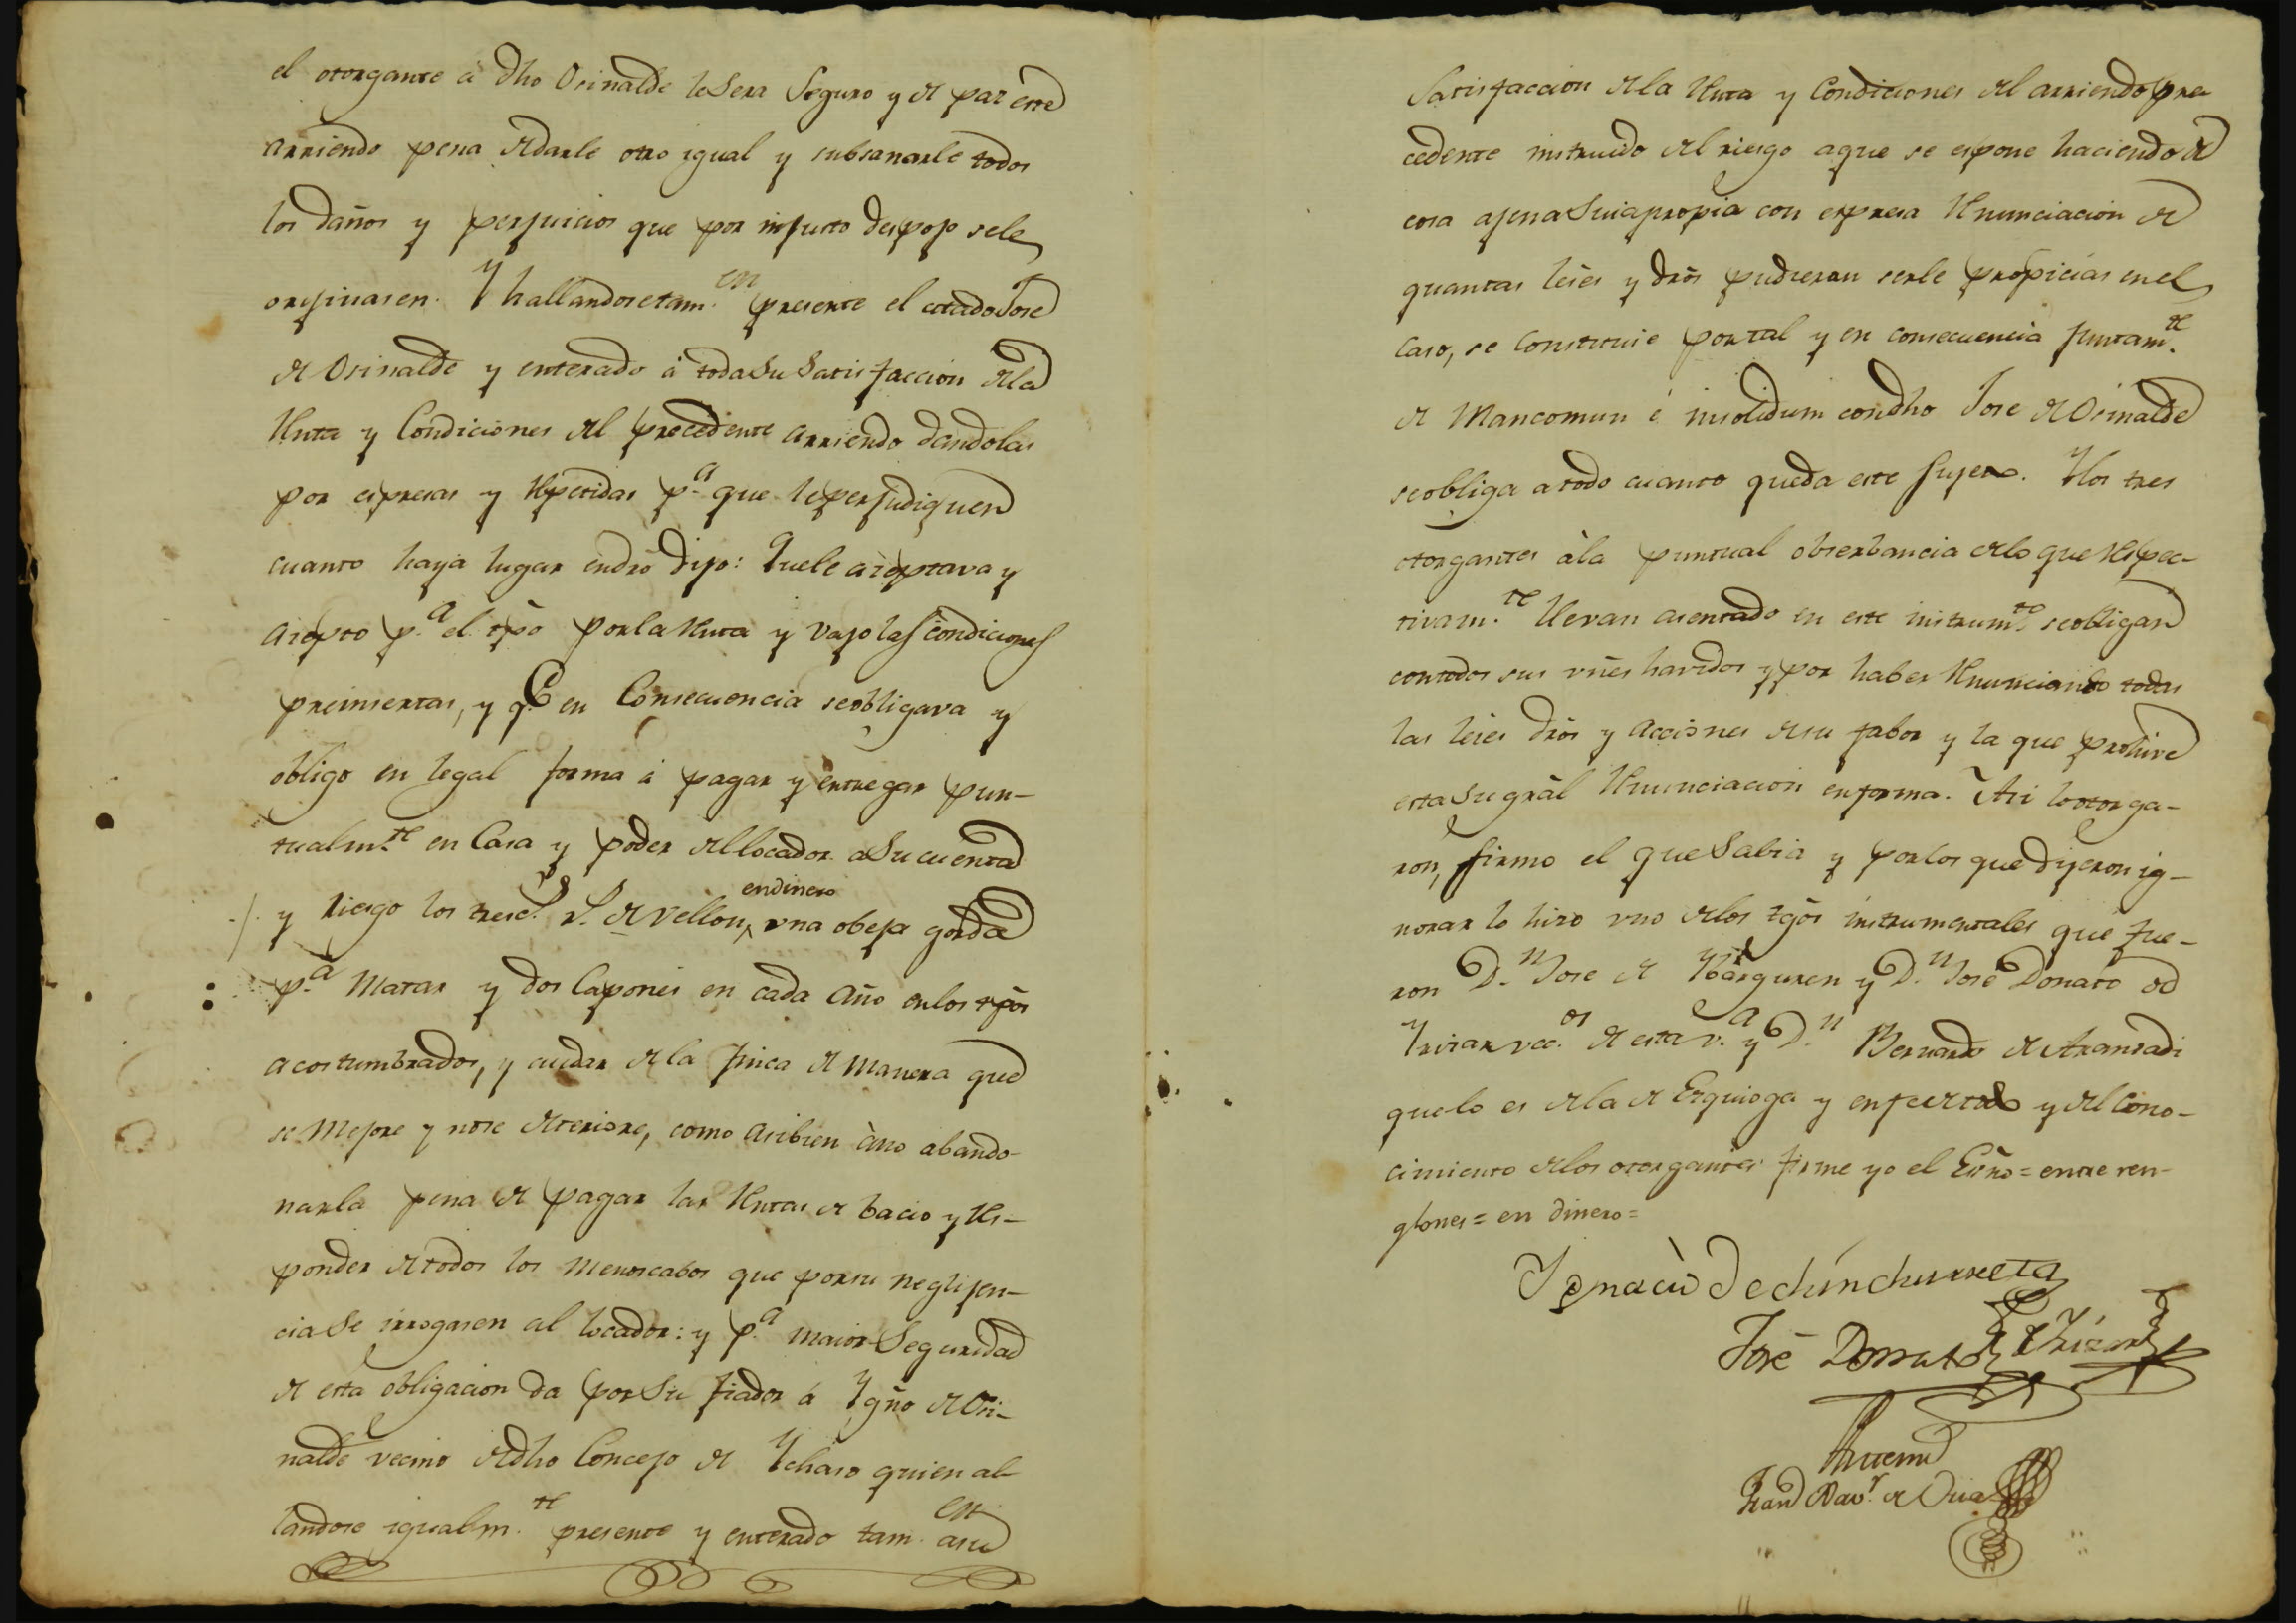 el otorgante á dho Osinalde le Sera Seguro y de paz este
arriendo pena de darle otro igual y subsanarle todos
los daños y perjuicios que por injusto despojo se le
orijinasen. Y hallandose tam.en presente el citado Jose
de Osinalde y enterado á toda Su Satisfaccion de la
Renta y Condiciones del precedente arriendo dandolas
por espresas y repetidas p.a que le perjudiquen
cuanto haya lugar en dro dijo: Que le aceptava y
acepto p.a el tpo por la Renta y vajo las condiciones
preinsertas, y q.e en Consecuencia se obligava y
obligo en legal forma á pagar y entregar pun-
tualm.te en Casa y poder del locador a Su cuenta
y riesgo los tresc.s r.s de vellon, una obeja gorda
en dinero
p.a Matar y dos Capones en cada Año en los tpos
acostumbrados, y cuidar de la finca de Manera que
se Mejore y no se deteriore, como asi bien á no abando-
narla pena de pagar las Rentas de bacio y Res-
ponder de todos los Menoscabos que por su neglijen-
cia Se irrogasen al locador: y p.a maior Seguridad
de esta obligacion da por Su fiador á Ygño de Osi-
nalde vecino de dho Concejo de Ychaso quien al-
landose igualm.te presente y enterado tam.en a su
Satisfaccion de la Renta y Condiciones del arriendo pre-
cedente instruido del riesgo a que se espone haciendo de
cosa ajena Suia propia con espresa Renunciacion de
quantas leies y dros pudieran serle propicias en el
Caso, se Constituie por tal y en consecuencia juntam.te
de Mancomun é insolidum con dho Jose de Osinalde
se obliga a todo cuanto queda este Sujeto. Y los tres
otorgantes á la puntual obserbancia de lo que Respec-
tivam.te llevan asentado en este instrum.to se obligan
con todos sus vñes havidos y por haber Renunciando todas
las leies dros y acciones de su fabor y la que prohive
esta Su gral Renunciacion en forma. Asi lo otorga-
ron, firmo el que Sabia y por los que dijeron ig-
norar lo hizo uno de los tgos instrumentales que fue-
ron D.n Jose de Ybarguren y D.n Jose Donato de
Yrizar vec.os de esta v.a y D.n Bernardo de Aransadi
que lo es de la de Ezquioga y en fee de todo y del Cono-
cimiento de los otorgantes firme yo el Essno = entre ren-
glones = en dinero =
Ygnacio De chinchurreta
José Donato de Yrizar
Ante mi
Juan Bav.ta de Oria